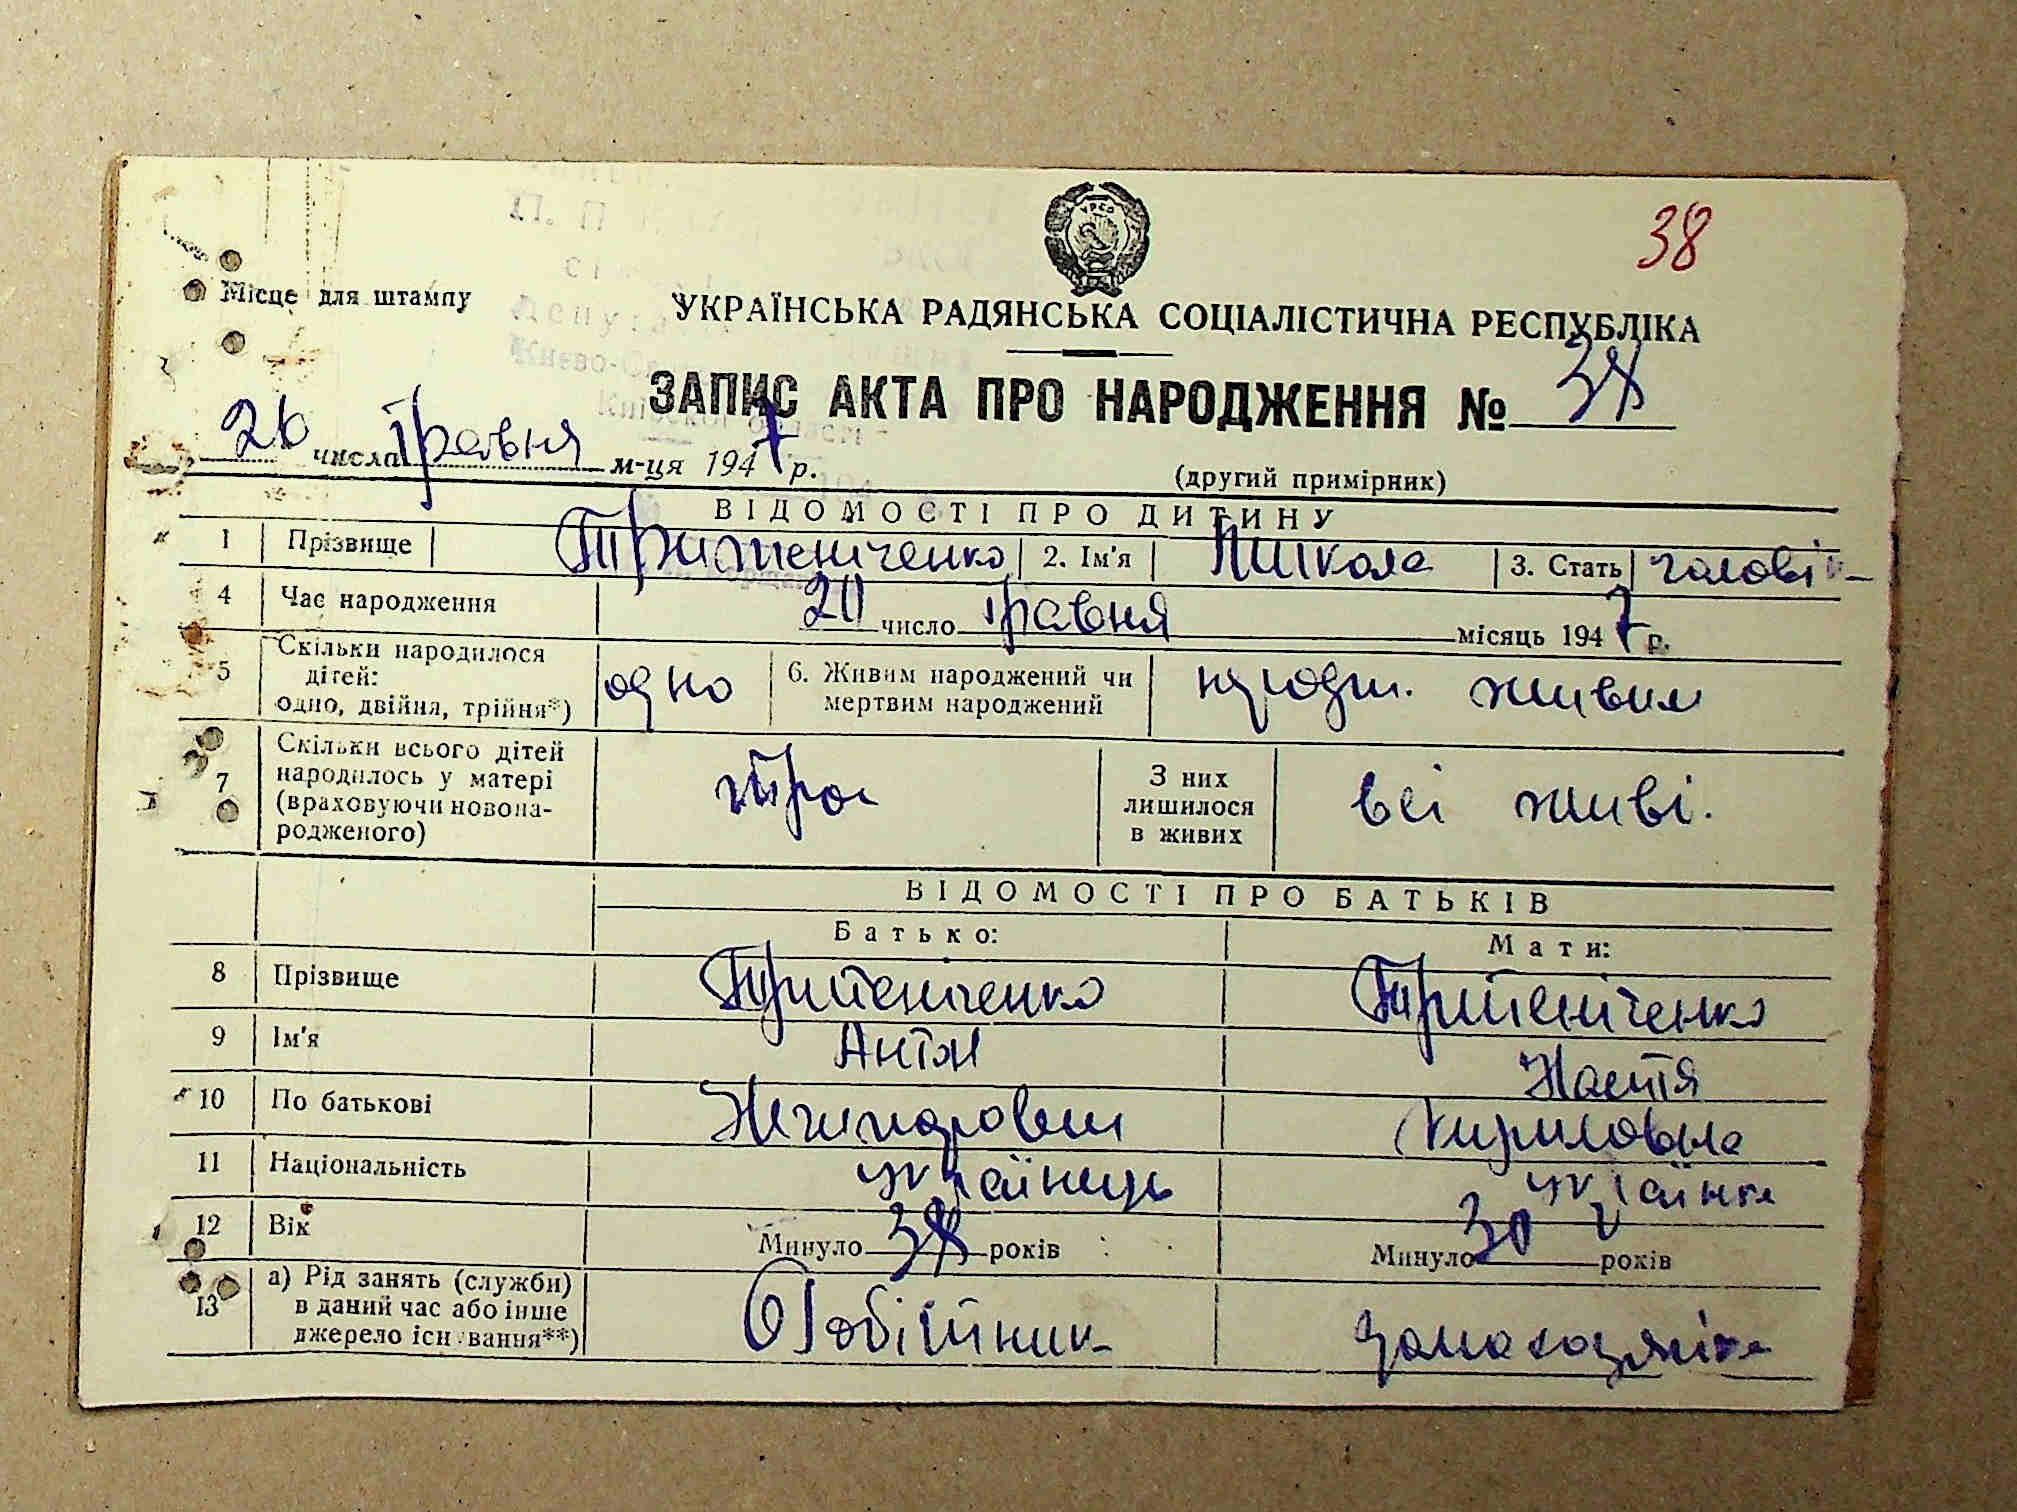 38
Місце для штампу
УКРАЇНСЬКА РАДЯНСЬКА СОЦІАЛІСТИЧНА РЕСПУБЛІКА
ЗАПИС АКТА ПРО НАРОДЖЕННЯ № 38
26 числа травня м-ця 1947 р.
(другий примірник)
ВІДОМОСТІ ПРО ДИТИНУ
1 Прізвище 2. Ім'я Микола 3. Стать чолові-
4 Час народження 20 число травня місяць 1947 р.
5 Скільки народилося дітей: одно, двійня, трійня*) одно 6. Живим народжений чи мертвим народжений народж. живим
7 Скільки всього дітей народилось у матері (враховуючи новонародженого) троє З них лишилося в живих всі живі.
ВІДОМОСТІ ПРО БАТЬКІВ
Батько: Мати:
8 Прізвище
9 Ім'я Антон Настя
10 По батькові Нечипорович Кириловна
11 Національність українець українка
12 Вік Минуло 38 років Минуло 30 років
13 а) Рід занять (служби) в даний час або інше джерело існування**) Робітник домохазяйка